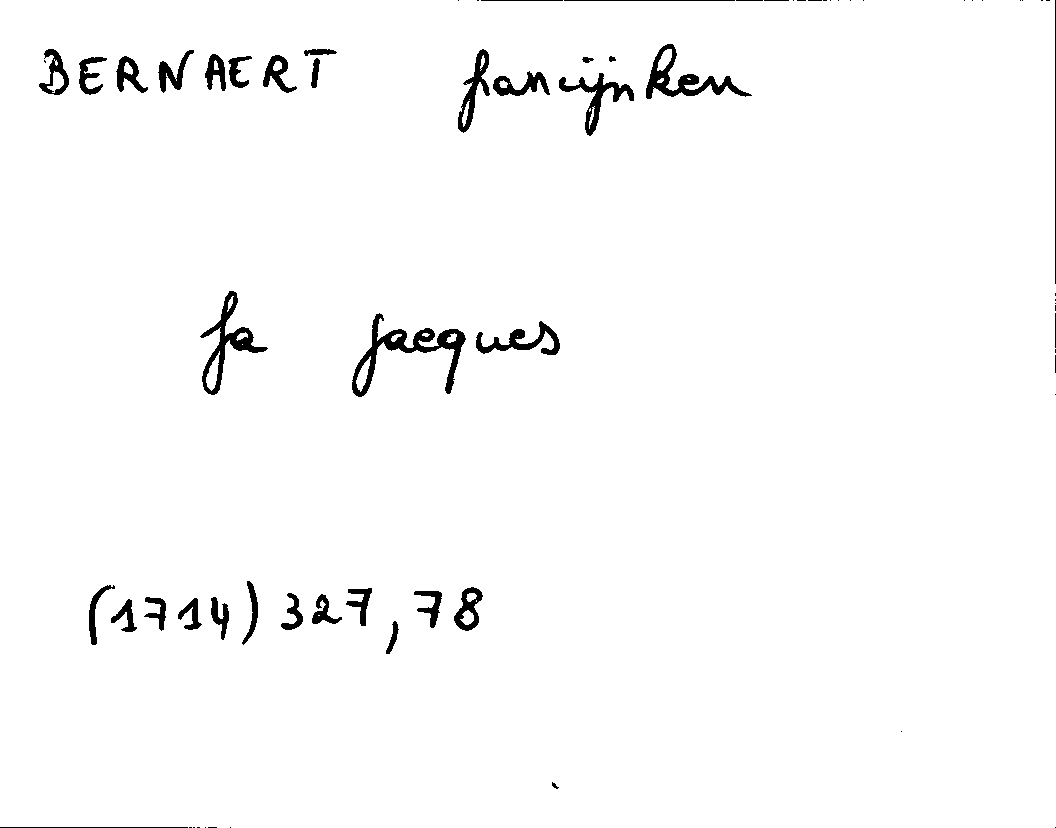 BERNAERT francijnken
fa jacques
(1714) 327, 78